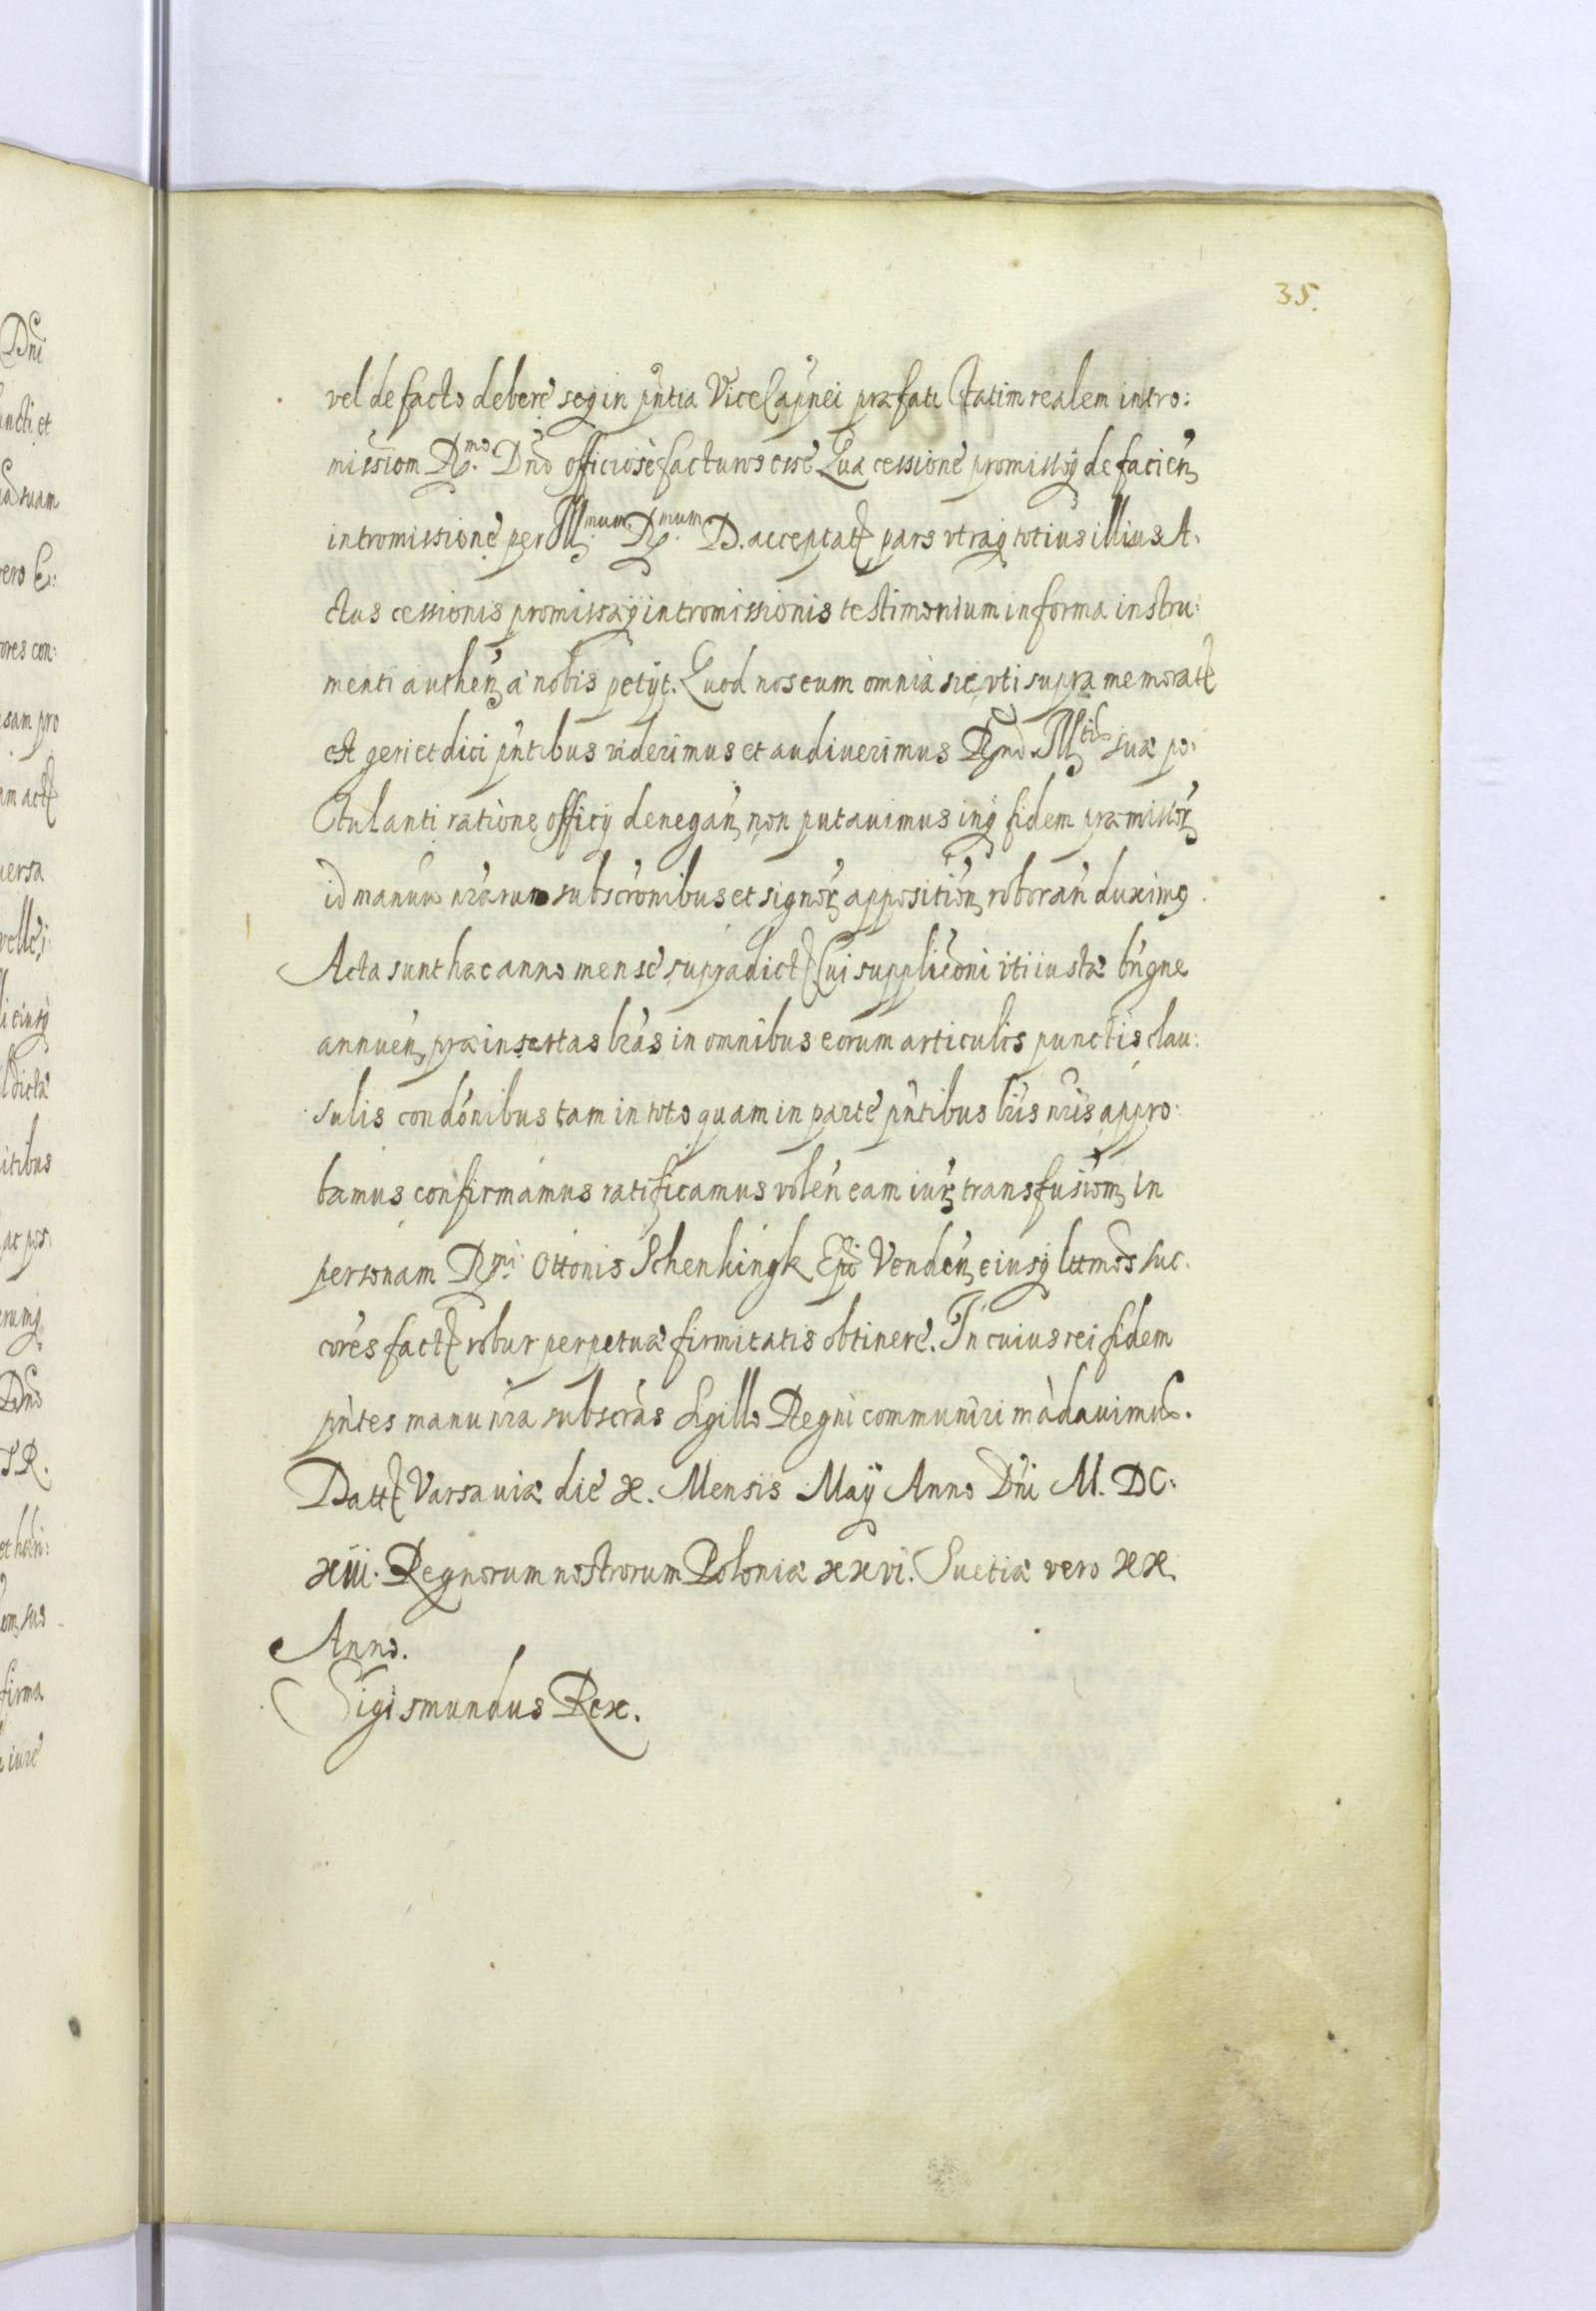 35.
vel de facto debere seq in pntia ViceCapnei præfati statim realem intro:
missiom Rmo. Dno officiose facturos esse Qua cessione promissoq de facien
intromissione per Illmum Rmum D. acceptat pars vtraq totius illius A:
ctus cessionis promissæq intromissionis testimonium in forma instru:
menti authen a nobis petijt. Quod nos cum omnia sic, vti supra memorat
est geri et dici pntibus viderimus et audiuerimus Rndo Illtis suæ po:
stulanti ratione officij denegan non putauimus inq fidem præmissor
id manuu nrarum subscronibus et signor apposition roboran duximq.
Acta sunt hæc anno mense supradict Cui suppliconi iti iustæ bngne
annuen præinsertas lras in omnibus eorum articulis punctis clau:
sulis condonibus tam in toto quam in parte pntibus lris nris appro:
bamus confirmamus ratificamus volen eam iur transfusiom in
personam Rmi. Ottonis Schenhingk Epi Venden eiusq lttmos suc:
cores fact robur perpetuæ firmitatis obtinere. In cuius rei fidem
pntes manu nra subscras Sigillo Regni communiri mādauimus.
Datt Varsauiæ die x. Mensis Maÿ Anno Dni M. DC.
xiii. Regnorum nostrorum Poloniæ xxvi. Suetiæ vero xx.
Anno.
Sigismundus Rex.